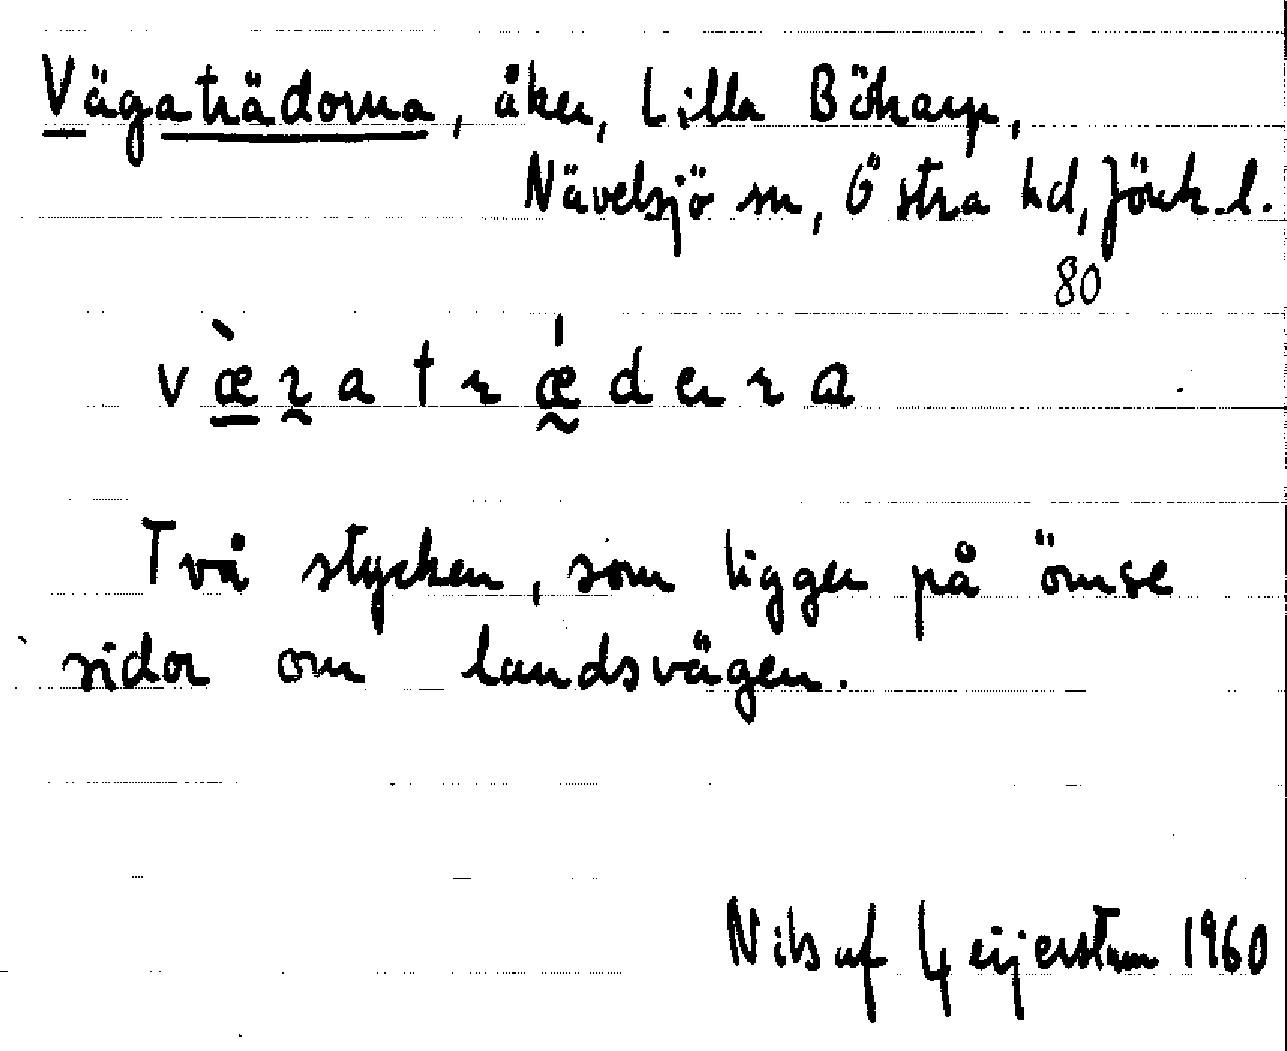 Vägaträdorna, åker, Lilla Bökarp,
Nävelsjö sn, Östra hd, Jönk. l.
80
Två stycken, som ligger på ömse
sidor om landsvägen.
Nils af Geijerstam 1960